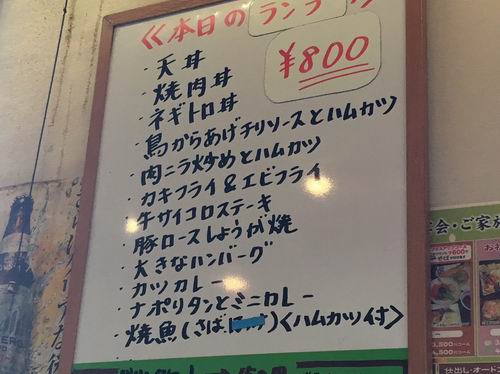 ≪本日のランチ
¥800
・天丼
・焼肉丼
・ネギトロ丼
・鳥からあげチリソースとハムカツ
・肉ニラ炒めとハムカツ
・カキフライ&エビフライ
・牛サイコロステーキ
・豚ロースしょうが焼
・大きなハンバーグ
・カツカレー
・ナポリタンとミニカレー
・焼魚(さば)<ハムカツ付>
会・ご家
仕出し・オート